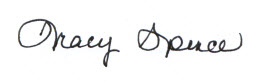 Tracy Spence